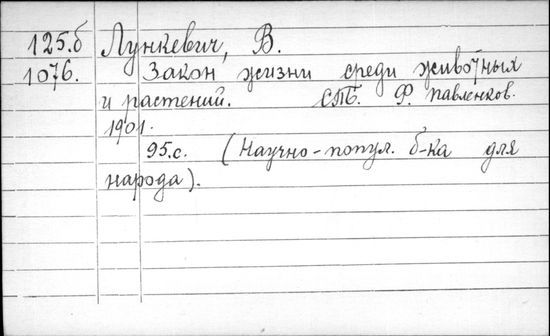 125.б Лункевич, В.
1076. Закон жизни среди животных
и растений. СПБ. Ф. Павленков.
1901.
95.с. (Научно-попул. б-ка для
народа).